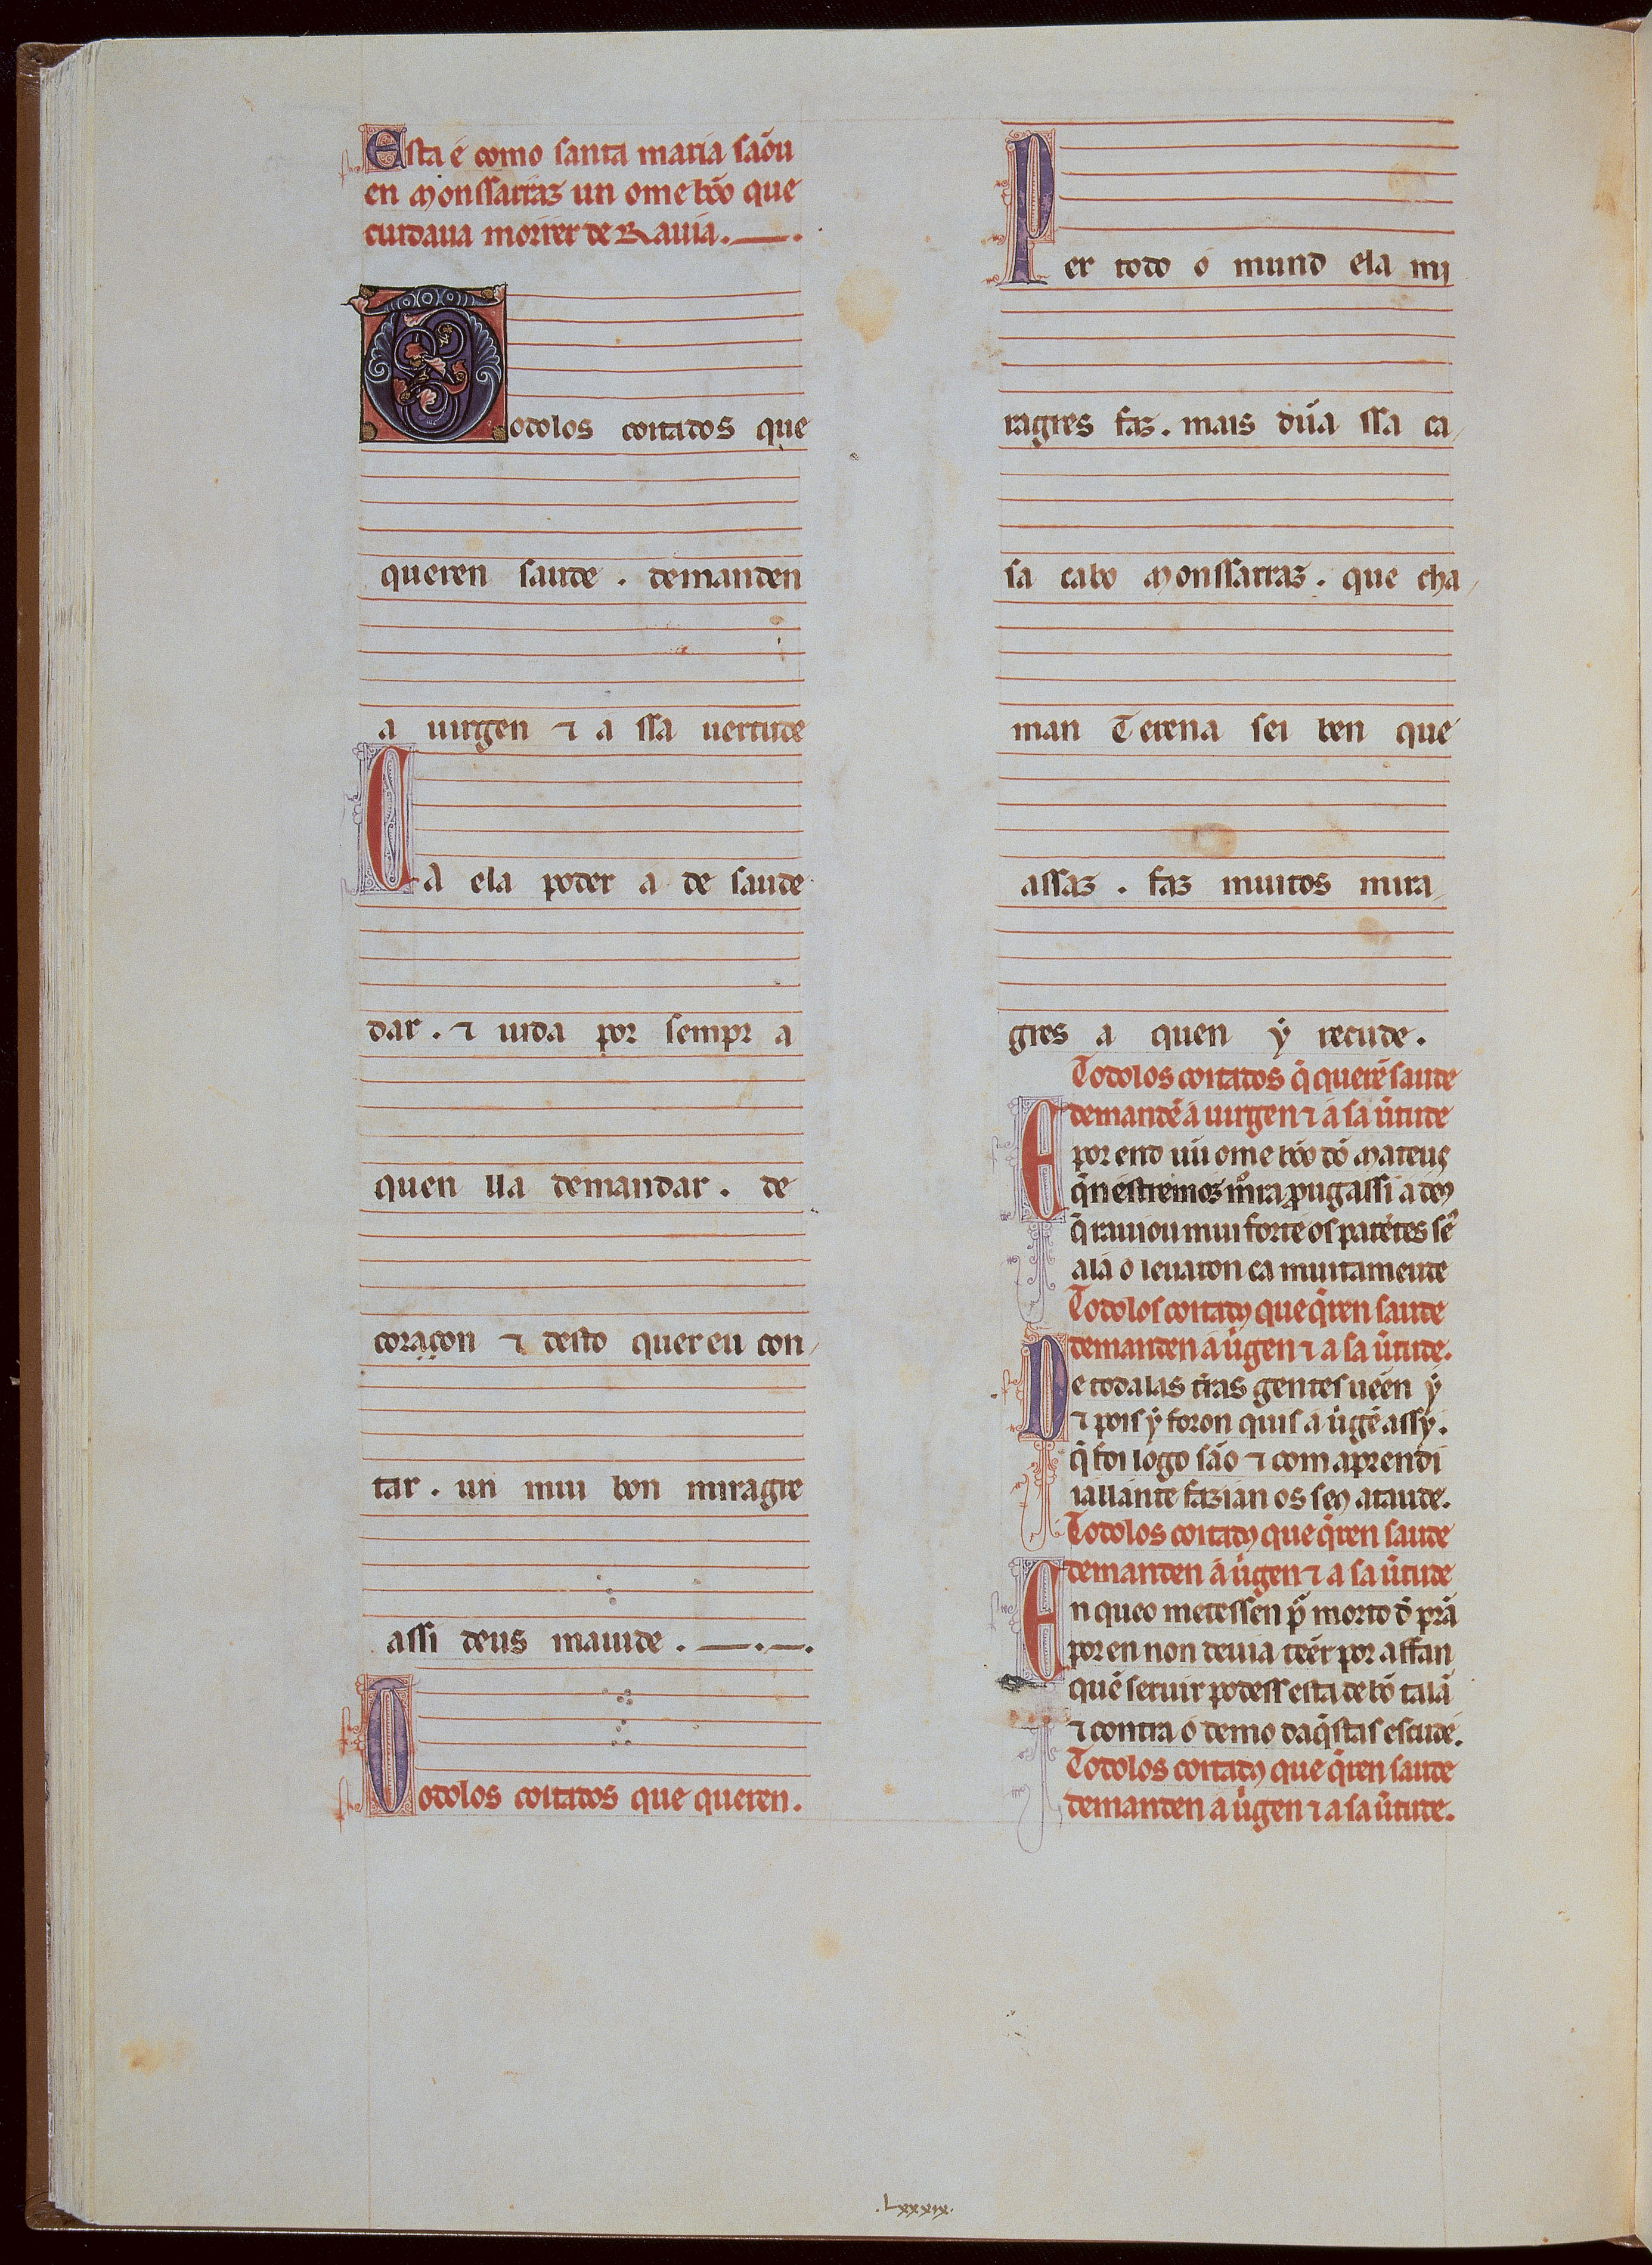 Esta é como santa maria sãou
en Monssarraz un ome bõo que
cuidaua morrer de Rauia.
Todolos coitados que
queren saude . demanden
a uirgen ⁊ a ssa uertude
Ca ela poder a de saude
dar . ⁊ uida por sempr a
quen lla demandar . de
coraçon ⁊ desto quer eu con
tar . un mui bon miragre
assi deus maiude .
Todolos coitados que queren.
Per todo o mund ela mi
ragres faz . mais dũa ssa ca
sa cabo Monssarraz . que cha
man Terena sei ben que
assaz . faz muitos mira
gres a quen ẏ recude .
Todolos coitados q̃ querẽ saude
demandẽ á uirgen ⁊ á sa ũtude
E por end uũ ome bõo dõ Mateus
q̃ n estremoz m̃ra prougassi a deus
q̃ rauiou mui forte os parẽtes seus
alá o leuaron ca muitamẽte
Todolos coitados que q̃ren saude
demanden á uirgen ⁊ a sa ũtude.
De todalas t̃ras gentes uéen ẏ
⁊ pois ẏ foron quis a uirgẽ assy.
q̃ foi logo são ⁊ com aprendi
ia llante fazian os seus ataude.
Todolos coitados que q̃ren saude
demanden á uirgen ⁊ a sa ũtude
En queo metessen pos morto d̃ prã
por en non deuia teer por affan
quẽ seruir podess esta de bõ talã
⁊ contra o demo daq̃stas escude.
Todolos coitados que q̃ren saude
demanden a uirgen ⁊ a sa ũtude.
.Lxxxix.